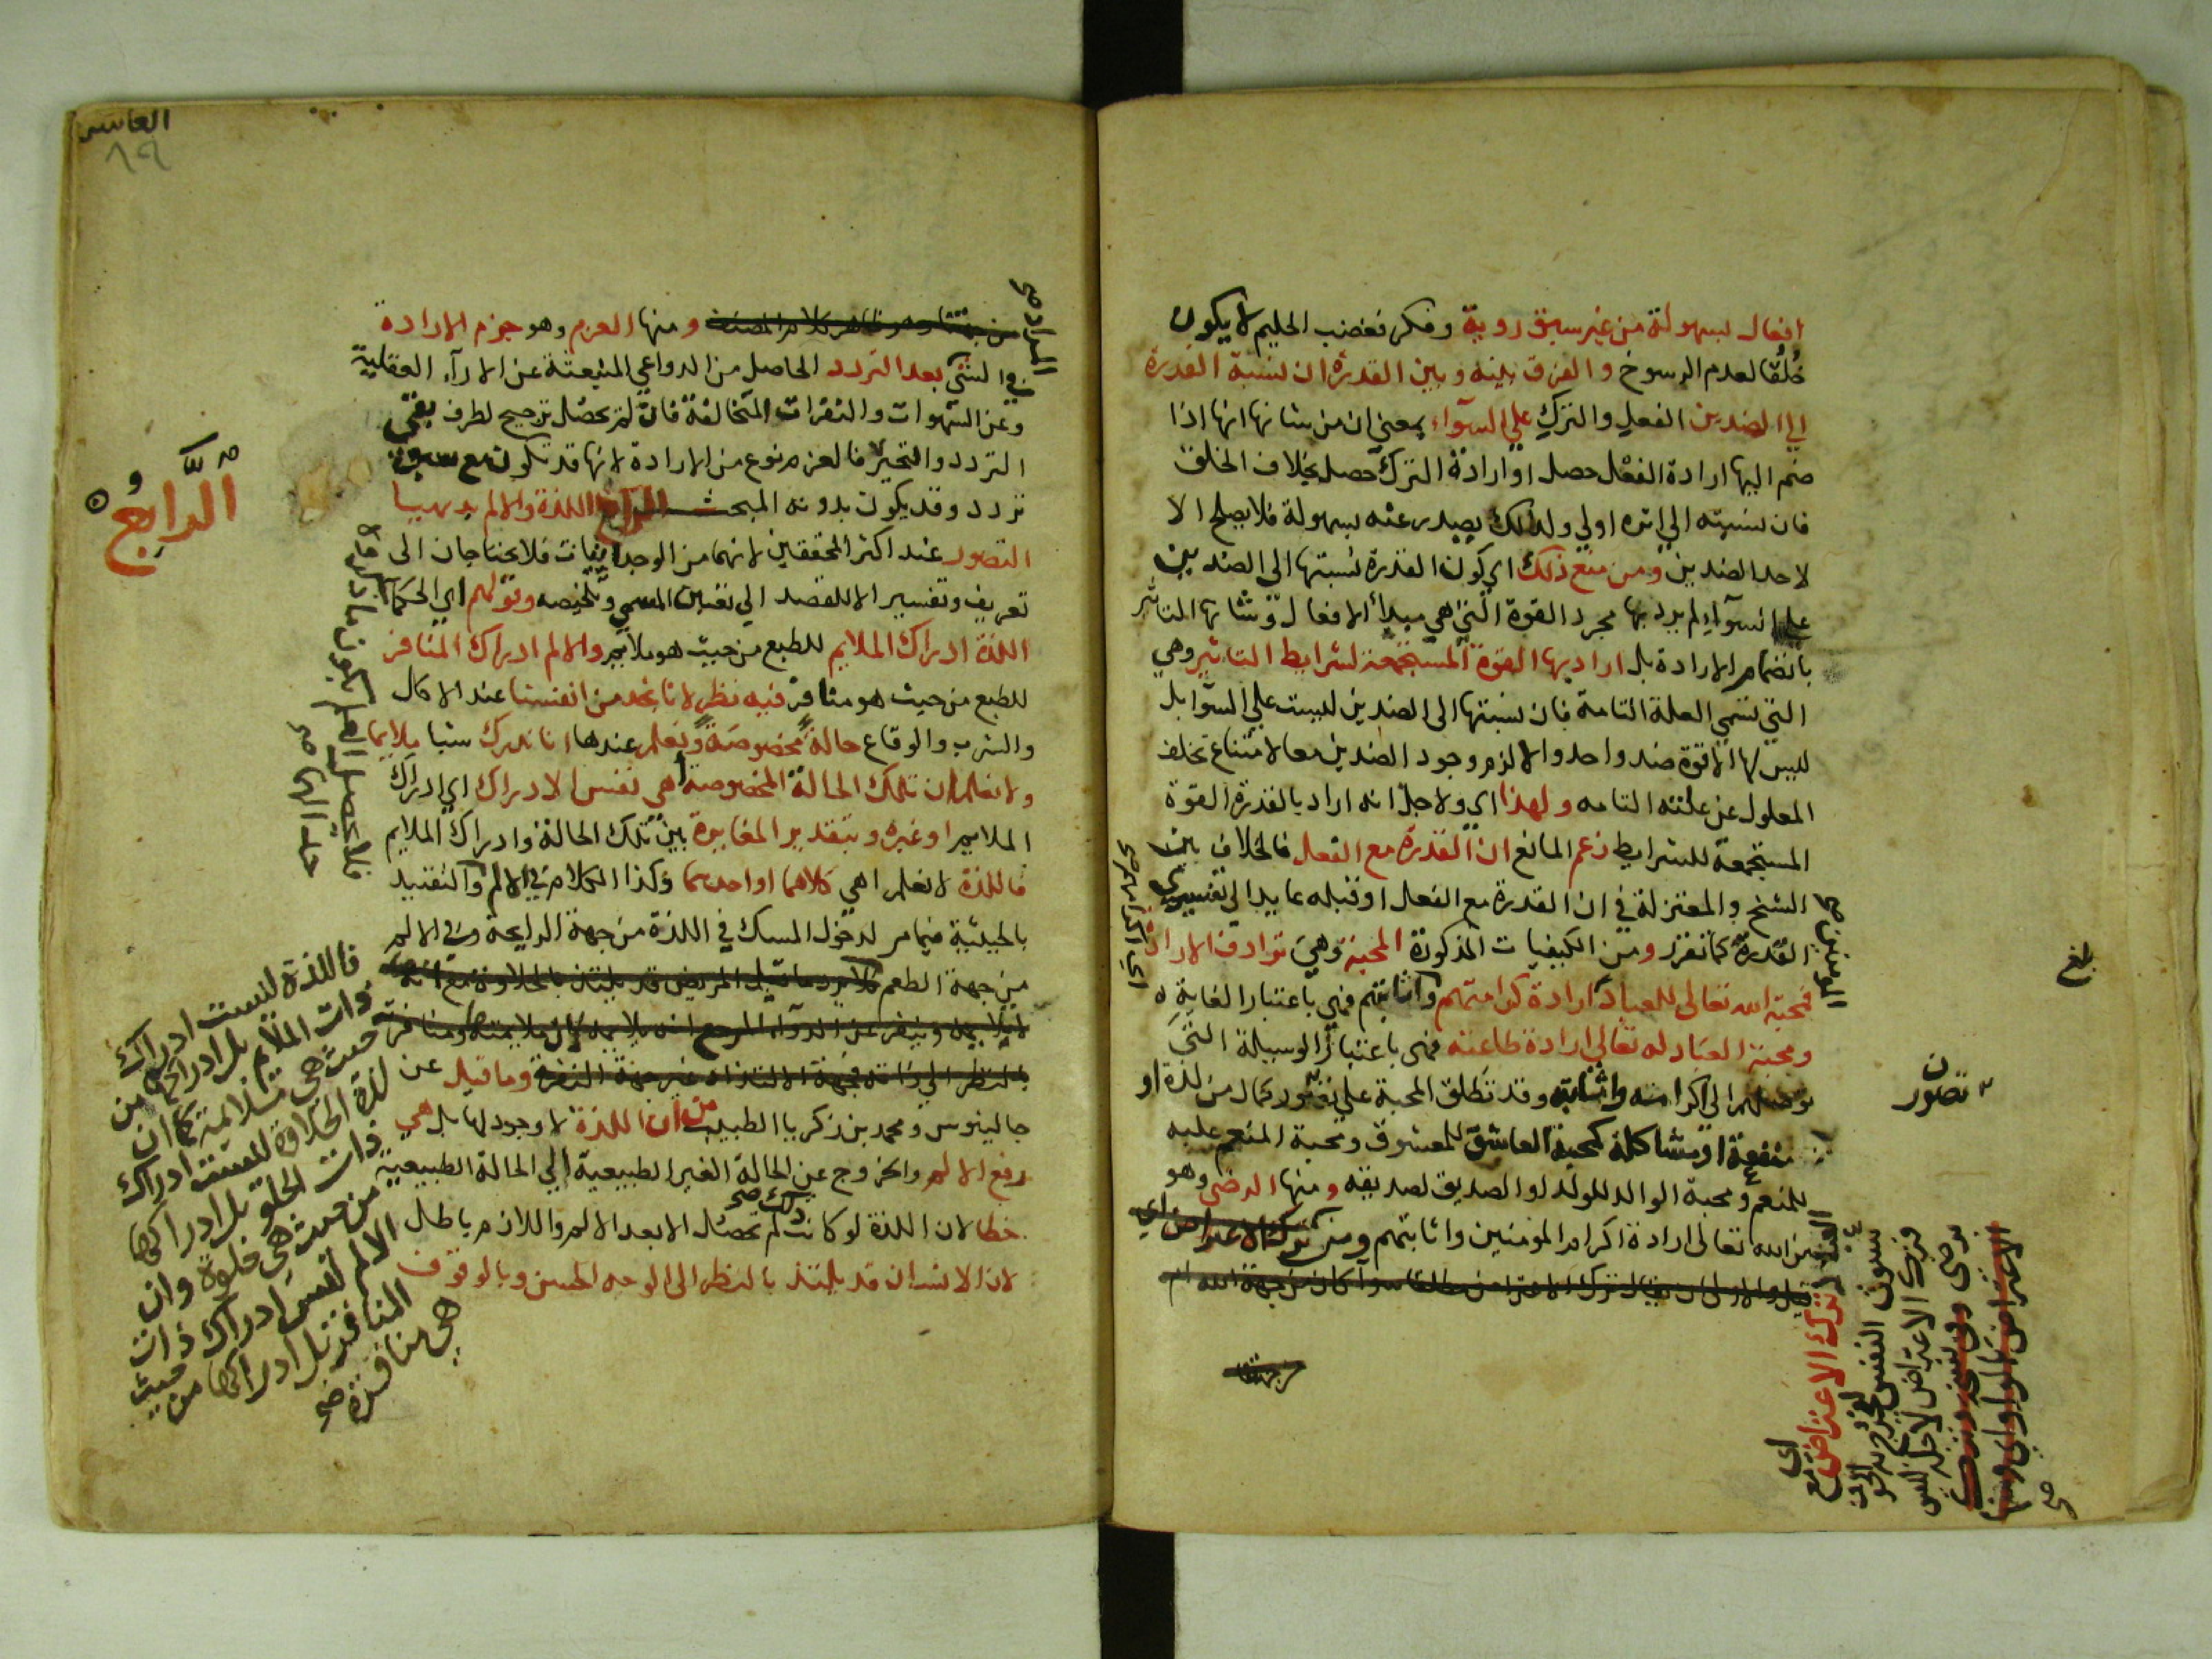 افعال بسهولة من غير سبق روية وفكر فغضب الحليم لا يكون
خُلُقًا لعدم الرسوخ والفرق بينه وبين القدرة ان نسبة القدرة
الي الضدين الفعل والترك علي السوآء بمعني ان من شانها انها اذا
ضم اليها ارادة الفعل حصل او ارادة الترك حصل بخلاف الخلق
فان نسبته الي اثره اولي ولذلك يصدر عنه بسهولة فلا يصلح الا
لاحد الضدين ومن منع ذلك اي كون القدرة نسبتها الي الضدين
علي السوآء لم يرد بها مجرد القوة التي هي مبدأ الافعال وشانها التاثير
بانضمام الارادة بل اراد بها القوة المستجمعة لشرايط التاثير وهي
التي تسمي العلة التامة فان نسبتها الى الضدين ليست علي السوآ بل
ليس لها الا قوة ضد واحد والا لزم وجود الضدين معا لامتناع تخلف
المعلول عن علته التامه ولهذا اي ولاجل انه اراد بالقدرة القوة
المستجمعة للشرايط زعم المانع ان القدرة مع الفعل فالخلاف بين
الشيخ والمعتزلة في ان القدرة مع الفعل او قبله عايد الي تفسيري
القدرة كما تقرر ومن الكيفيات المذكورة المحبة وهي ترادف الارادة
فمحبة الله تعالى للعباد ارادة كرامتهم واثابتهم فهي باعتبار الغاية
ومحبة العباد له تعالي ارادة طاعته فهى باعتبار الوسيلة التي
توصلهم الي اكرامه واثابته وقد تطلق المحبة علي تصور كمال من لذة او
منفعة او مشاكلة كمحبة العاشق للمعشوق ومحبة المنعم عليه
للمنعم ومحبة الوالد للولد او الصديق لصديقه ومنها الرضى وهو
من الله تعالى ارادة اكرام المؤمنين واثابتهم ومن ترك الاعتراض اي
قيل والاولى ان يقال ترك الاعتراض مطلقا سوآ كان من جهة الله ام
من جهتنا
بلغ
تصور
ترك الاعتراض
العاشر
٨٩
من جهتنا وهو ظاهر كلام المصنف ومنها العزم وهو جزم الارادة
في الشي بعد التردد الحاصل من الدواعي المنبعثة عن الارآء العقلية
وعن الشهوات والنفرات المتخالفة فان لم يحصل ترجيح لطرف بقي
التردد والتحير فالعزم نوع من الارادة لانها قد تكون مع سبق
تردد وقد يكون بدونه المبحث الرابع اللذة والالم بديهيا
التصور عند اكثر المحققين لانهما من الوجدانيات فلا يحتاجان الى
تعريف وتفسير الا لقصد الي تعيين المسمي وتلخيصه وقولهم اي الحكمآ
اللذة ادراك الملايم للطبع من حيث هو ملايم والالم ادراك المنافر
للطبع من حيث هو منافر فيه نظر لانا نجد من انفسنا عند الاكل
والشرب والوقاع حالة مخصوصة ونعلم عندها انا ندرك شيا يلايما
ولا نعلم ان تلك الحالة المخصوصة اهي نفس الادراك اي ادراك
الملايم او غيره وبتقدير المغايرة بين تلك الحالة وادراك الملايم
فاللذة لا نعلم اهي كلاهما او احدهما وكذا الكلام في الالم والتقييد
بالحيثية فيما مر لدخول المسك في اللذة من جهة الرايحة وفي الالم
من جهة الطعم فلا يرد ما قيل المريض قد يلتذ بالحلاوة مع انه
لا يلايمه وينفر عن الدوآء المر مع انه يلايمه لان ملايمته ومنافرته
بالنظر الي ذاته فجهة الالتذاذ غير جهة النفرة وما قيل عن
جالينوس ومحمد بن زكريا الطبيب من ان اللذة لا وجود لها بل هي
رفع الالم والخروج عن الحالة الغير الطبيعية الي الحالة الطبيعية
خطا لان اللذة لو كانت كذلك لم تحصل الا بعد الالم واللازم باطل
لان الانسان قد يلتذ بالنظر الى الوجه الحسن وبالوقوف
الرَّابِعُ
فاللذة ليست ادراك
ذات الملايم بل ادراكها من
حيث هي ملايمة كما ان
لذة الحلاوة ليست ادراك
ذات الحلو بل ادراكها
من حيث هي حلوة وان
الالم ليس ادراك ذات
المنافر بل ادراكها من حيث
هي منافرة صح